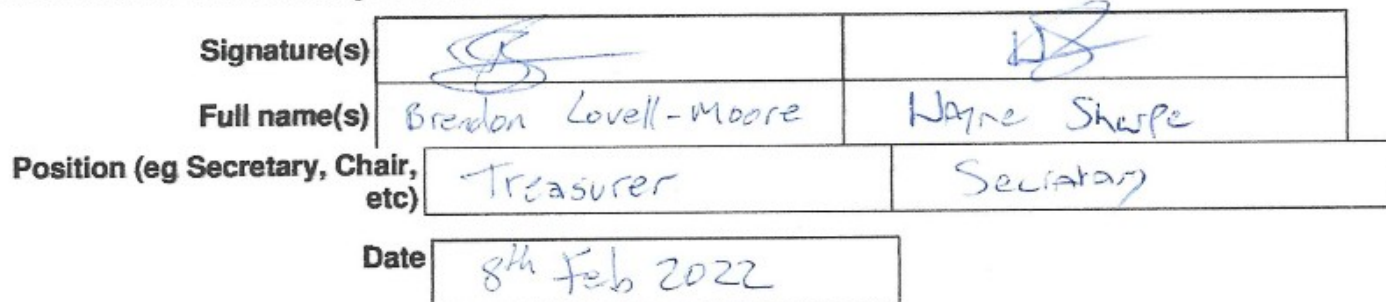 Signature(s)
Full name(s) Brendon Lovell-Moore Wayne Sharpe
Position (eg Secretary, Chair, etc) Treasurer Secretary
Date 8th Feb 2022